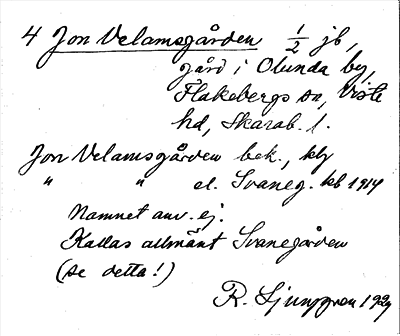 4 Jon Velamsgården 1/2 jb,
gård i Olunda by,
Flakebergs sn, Viste
hd, Skarab. l.
Jon Velamsgården bek., kbg
" " el. Svaneg. kb 1914
Namnet anv. ej.
Kallas allmänt Svanegården
(se detta!)
R. Ljunggren 1929